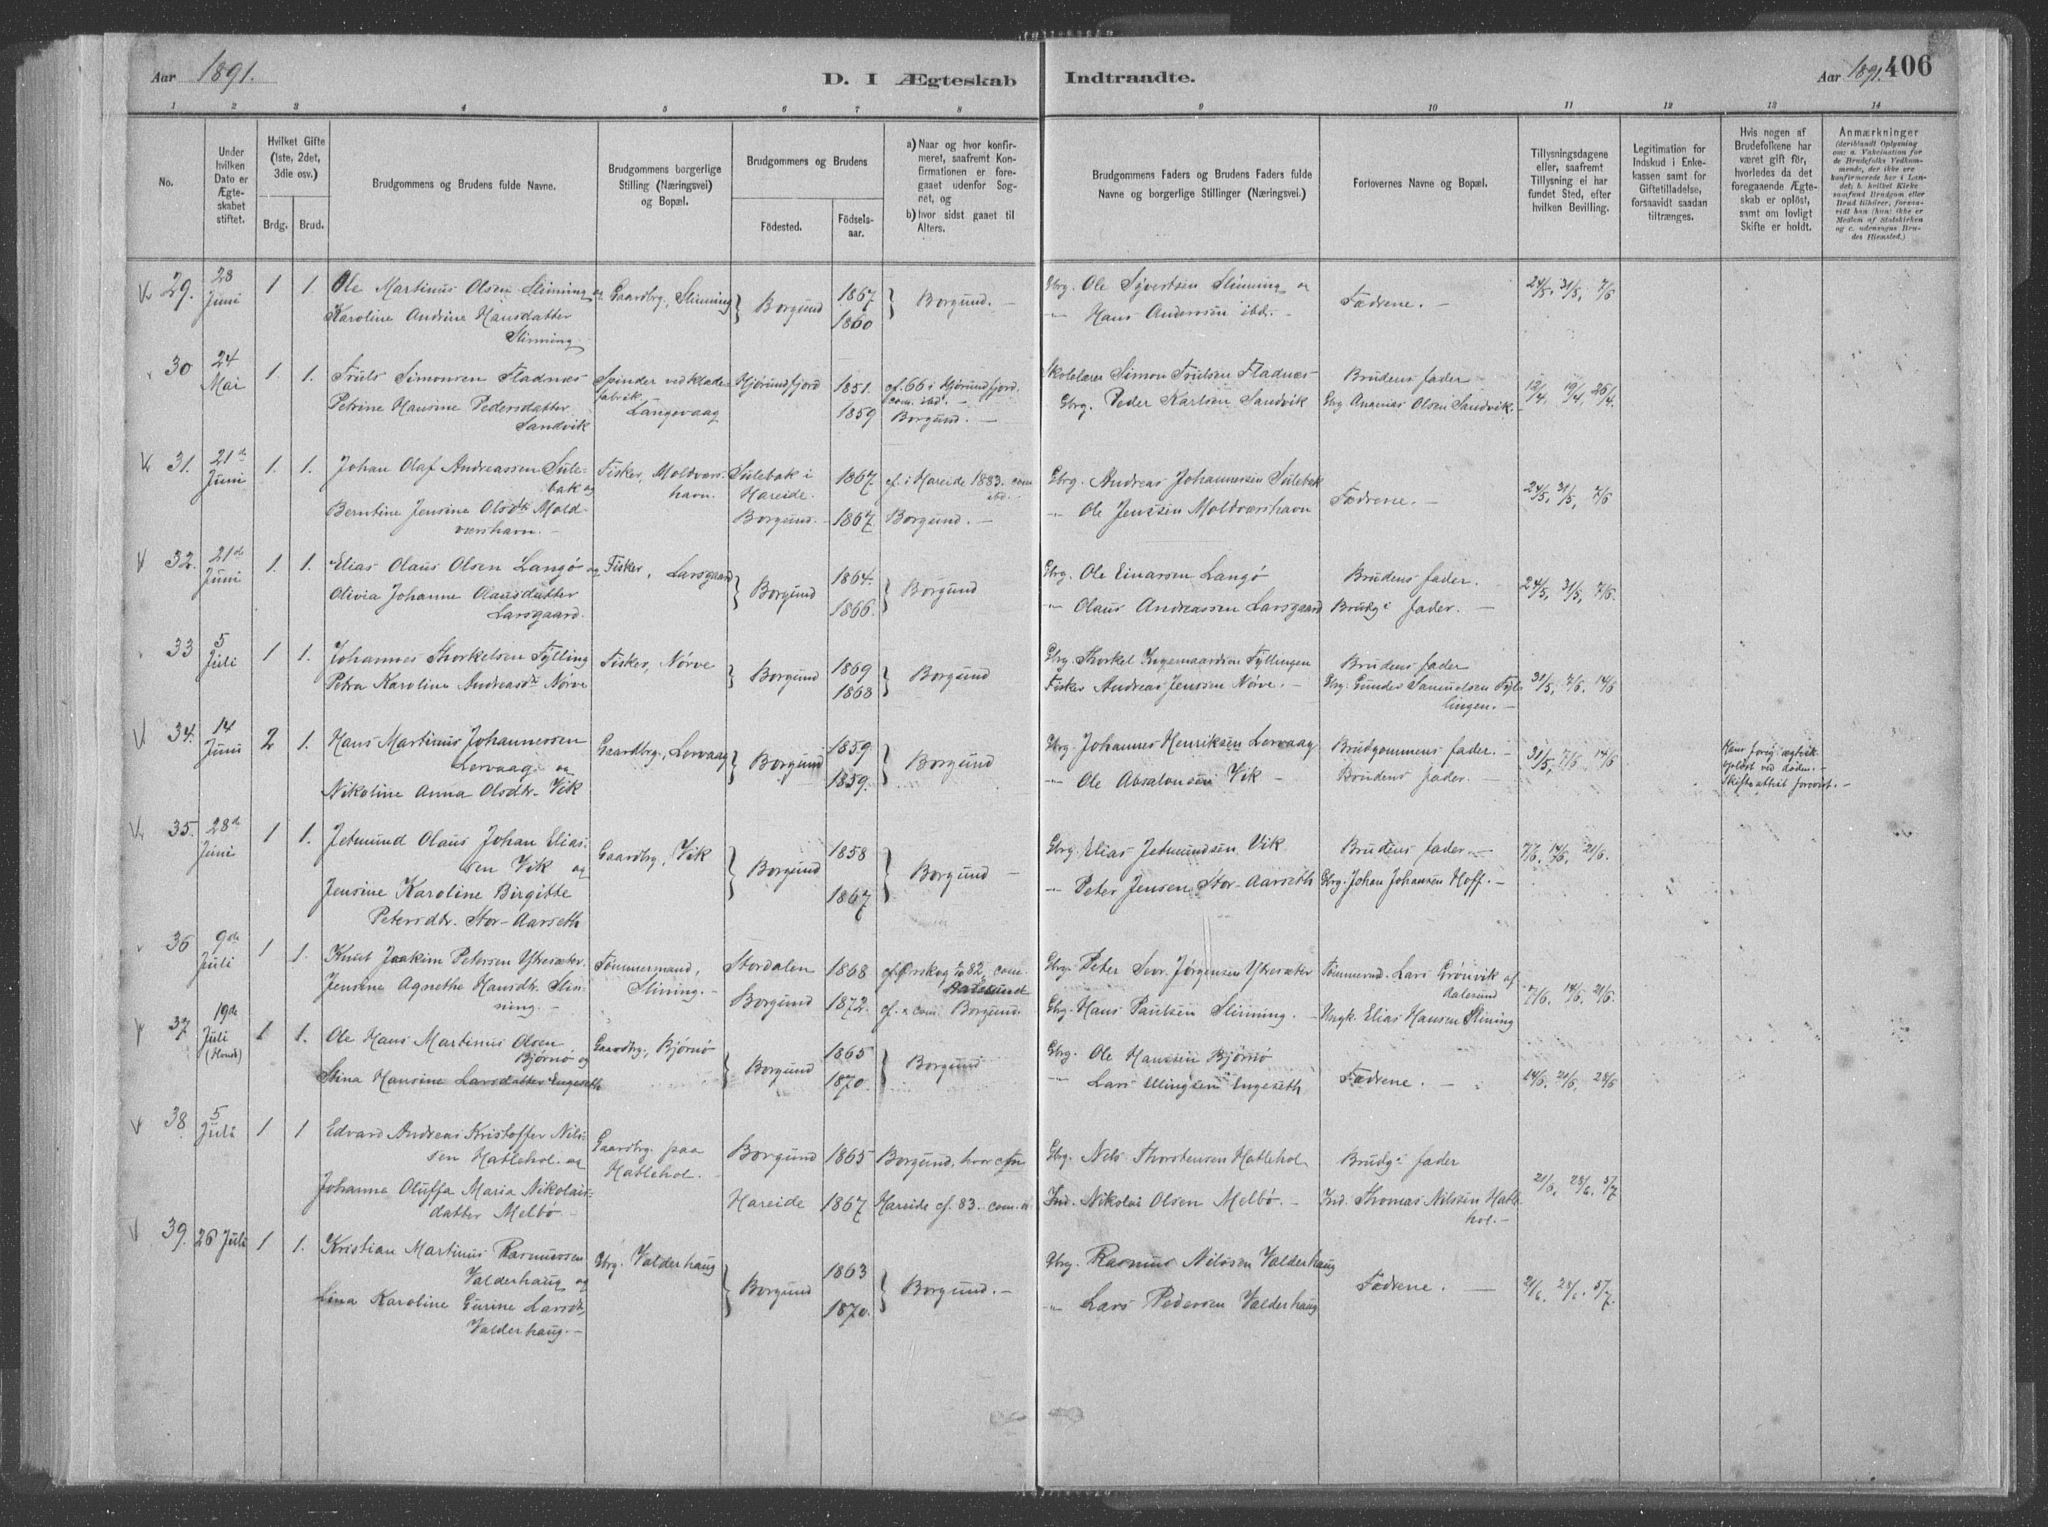 Aar 1891.
D. I Ægteskab Indtraadte.
Aar 1891. 406
1 2 3 4 5 6 7 8 9 10 11 12 13 14
No.
Under hvilken Dato er Ægteskabet stiftet.
Hvilket Gifte (1ste, 2det, 3die osv.)
Brdg. Brud.
Brudgommens og Brudens fulde Navne.
Brudgommens borgerlige Stilling (Næringsvei) og Bopæl.
Brudgommens og Brudens
Födested. Födselsaar.
a) Naar og hvor konfirmeret, saafremt Konfirmationen er foregaaet udenfor Sognet, og
b) hvor sidst gaaet til Alters.
Brudgommens Faders og Brudens Faders fulde Navne og borgerlige Stillinger (Næringsvei.)
Forlovernes Navne og Bopæl.
Tillysningsdagene eller, saafremt Tillysning ei har fundet Sted, efter hvilken Bevilling.
Legitimation for Indskud i Enkekassen samt for Giftetilladelse, forsaavidt saadan tiltrænges.
Hvis nogen af Brudefolkene har været gift för, hvorledes da det foregaaende Ægteskab er oplöst, samt om lovligt Skifte er holdt.
Anmærkninger (deriblandt Oplysning om: a. Vakcination for de Brudefolks Vedkommende, der ikke ere konfirmerede her i Landet; b. hvilket Kirkesamfund Brudgom eller Brud tilhörer, forsaavidt han (hun) ikke er Medlem af Statskirken og c. udensogns Brudes Hjemsted.)
29. 28 Juni 1 1. Ole Martinus Olsen Slinning og Gaardbrg, Slinning } Borgund 1867 } Borgund. — Gbrg. Ole Syvertsen Slinning og Fædrene. — 24/5. 31/5, 7/6
Karoline Andrine Hansdatter 1860 " Hans Anderssen ibd. —
Slinning
30 24 Mai 1. 1. Truls Simonsen Fladnes Spinder ved klædefabrik Hjörundfjord 1851. cf. 66 i Hjörundfjord. com. ibd. — Skolelærer Simon Trulsen Fladnes Brudens fader 12/4. 19/4, 26/4.
Petrine Hansine Pedersdatter Langevaag 1859 Borgund. — Gbrg. Peder Karlsen Sandvik Gbrg Ananias Olsen Sandvik. —
Sandvik
31. 21d Juni 1. 1. Johan Olaf Andreassen Sule- Fisker, Moldværs- Sulebak i 1867. cf. i Hareide 1883. com ibd. — Gbrg. Andreas Johannessen Sulebak Fædrene. — 24/5, 31/5, 7/6
bak og havn. Hareide.
Berntine Jensine Olsdtr Mold- Borgund. 1867. Borgund. — " Ole Jenssen Moldværshavn
værshavn. —
32. 21d Juni 1. 1. Elias Olaus Olsen Langö og Fisker, Larsgaard } Borgund 1864. } Borgund Gbrg. Ole Einarsen Langö Brudens fader. 24/5, 31/5, 7/6.
Olivia Johanne Olausdatter 1866. " Olaus Andreassen Larsgaard Brudg's fader. —
Larsgaard.
33 5 Juli 1 1. Johannes Thorkelsen Fylling Fisker, Nörve } Borgund 1869 } Borgund Gbrg. Thorkel Fyllingen Brudens fader 31/5, 7/6, 14/6
Petra Karoline Andreasdtr Nörve 1868 Fisker Andreas Jenssen Nörve. — Gbrg. Gunder Samuelsen Fyl-
lingen. —
34. 14 Juni 2 1. Hans Martinus Johannessen Gaardbrg, Lervaag } Borgund 1859. } Borgund Gbrg Johannes Henriksen Lervaag Brudgommens fader. — 31/5, 7/6 14/6 Hans forrig ægtesk. oplöst ved döden. —
Lervaag og
Nikoline Anna Olsdtr. Vik 1859. " Ole Absalonsen Vik — Brudens fader. Skifteattest forevist. —
35. 28d Juni 1 1. Jetmund Olaus Johan Elias- Gaardbrg, Vik } Borgund 1858 } Borgund — Gbrg. Elias Jetmundsen Vik Brudens fader. — 7/6. 14/6, 21/6.
sen Vik og
Jensine Karoline Birgitte 1867 " Peter Jensen Stor-Aarseth Gbrg. Johan Johansen Hoff. —
Petersdtr. Stor-Aarseth
36 9de Juli 1 1. Knut Joakim Petersen Ytresæter. Tömmermand, Stordalen 1868 cf. Örskog 82, com. Aalesund Gbrg. Peter Jörgensen Ytresæter Tömmermd. Lars Grönvik af 7/6. 14/6, 21/6.
Jensine Agnethe Hansdtr. Slin- Slinning. — Borgund 1872. cf. & com. Borgund. Gbrg. Hans Paulsen Slinning. — Aalesund
ning. — Ungk. Elias Hansen Slinning
37 19de Juli 1 1. Ole Hans Martinus Olsen Gaardbrg, Bjørnø } Borgund 1865 } Borgund Gbrg. Ole Hanssen Bjørnø
Bjørnø og
Stina Hansine Larsdatter Engeseth 1870. " Lars Ellingsen Engeseth Fædrene. — 14/6. 21/6, 28/6
38. 5 Juli 1 1 Edvard Andreas Kristoffer Nils- Gaardbrg. paa Borgund 1865 Borgund, hvor cfm Gbrg. Nils Thorstensen Hatlehol Brudg's fader 21/6, 28/6. 5/7
sen Hatlehol. og Hatlehol. —
Johanna Oluffa Maria Nikolais- Hareide 1867 Hareide cf. 83. com. Ind. Nikolai Olsen Melbö. — Ind. Thomas Nilssen Hatle-
datter Melbö — hol. —
39. 26 Juli 1 1. Kristian Martinus Rasmussen Gbrg. Valderhaug } Borgund 1863 } Borgund. — Gbrg. Rasmus Nilssen Valderhaug Fædrene. — 21/6. 28/6. 5/7.
Valderhaug og
Lina Karoline Gurine Larsdtr, 1870. " Lars Pedersen Valderhaug
Valderhaug. —